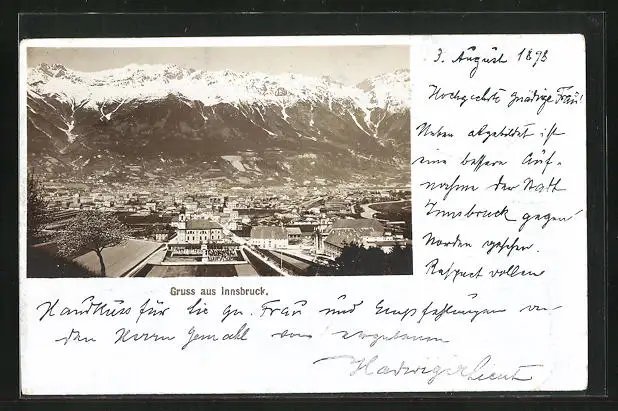 3. August 1898
Hochgeehrte Gnädige Frau!
Neben abgebildet ist
eine bessere Auf-
nahme der Stadt
Innsbruck gegen
Norden gesehen.
Respect vollen
Gruss aus Innsbruck.
Handkuss für die gn. Frau und Empfehlungen an
den Herrn Gemahl vom ergebenen